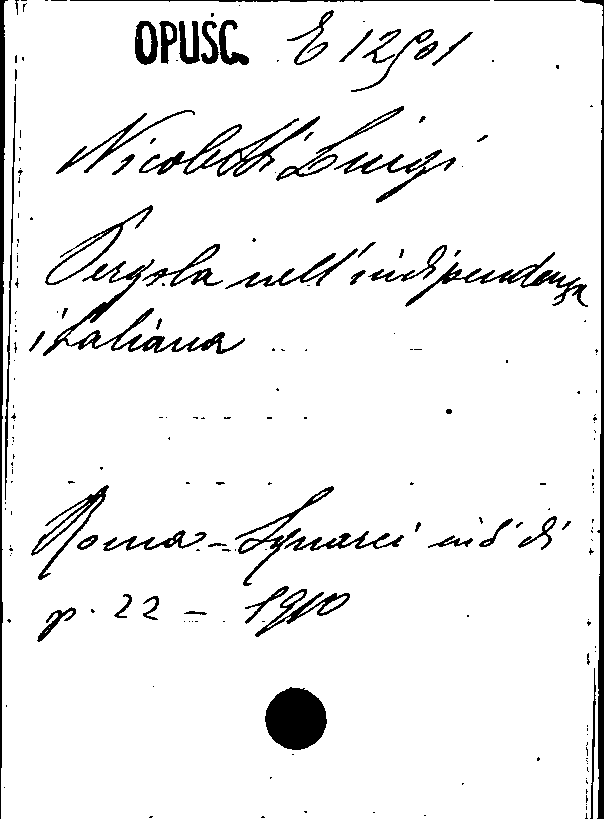 OPUSC. E 12501
Nicoletti Luigi
Pergola nell'indipendenza
italiana
Roma - Squarci
p. 22 - 1910